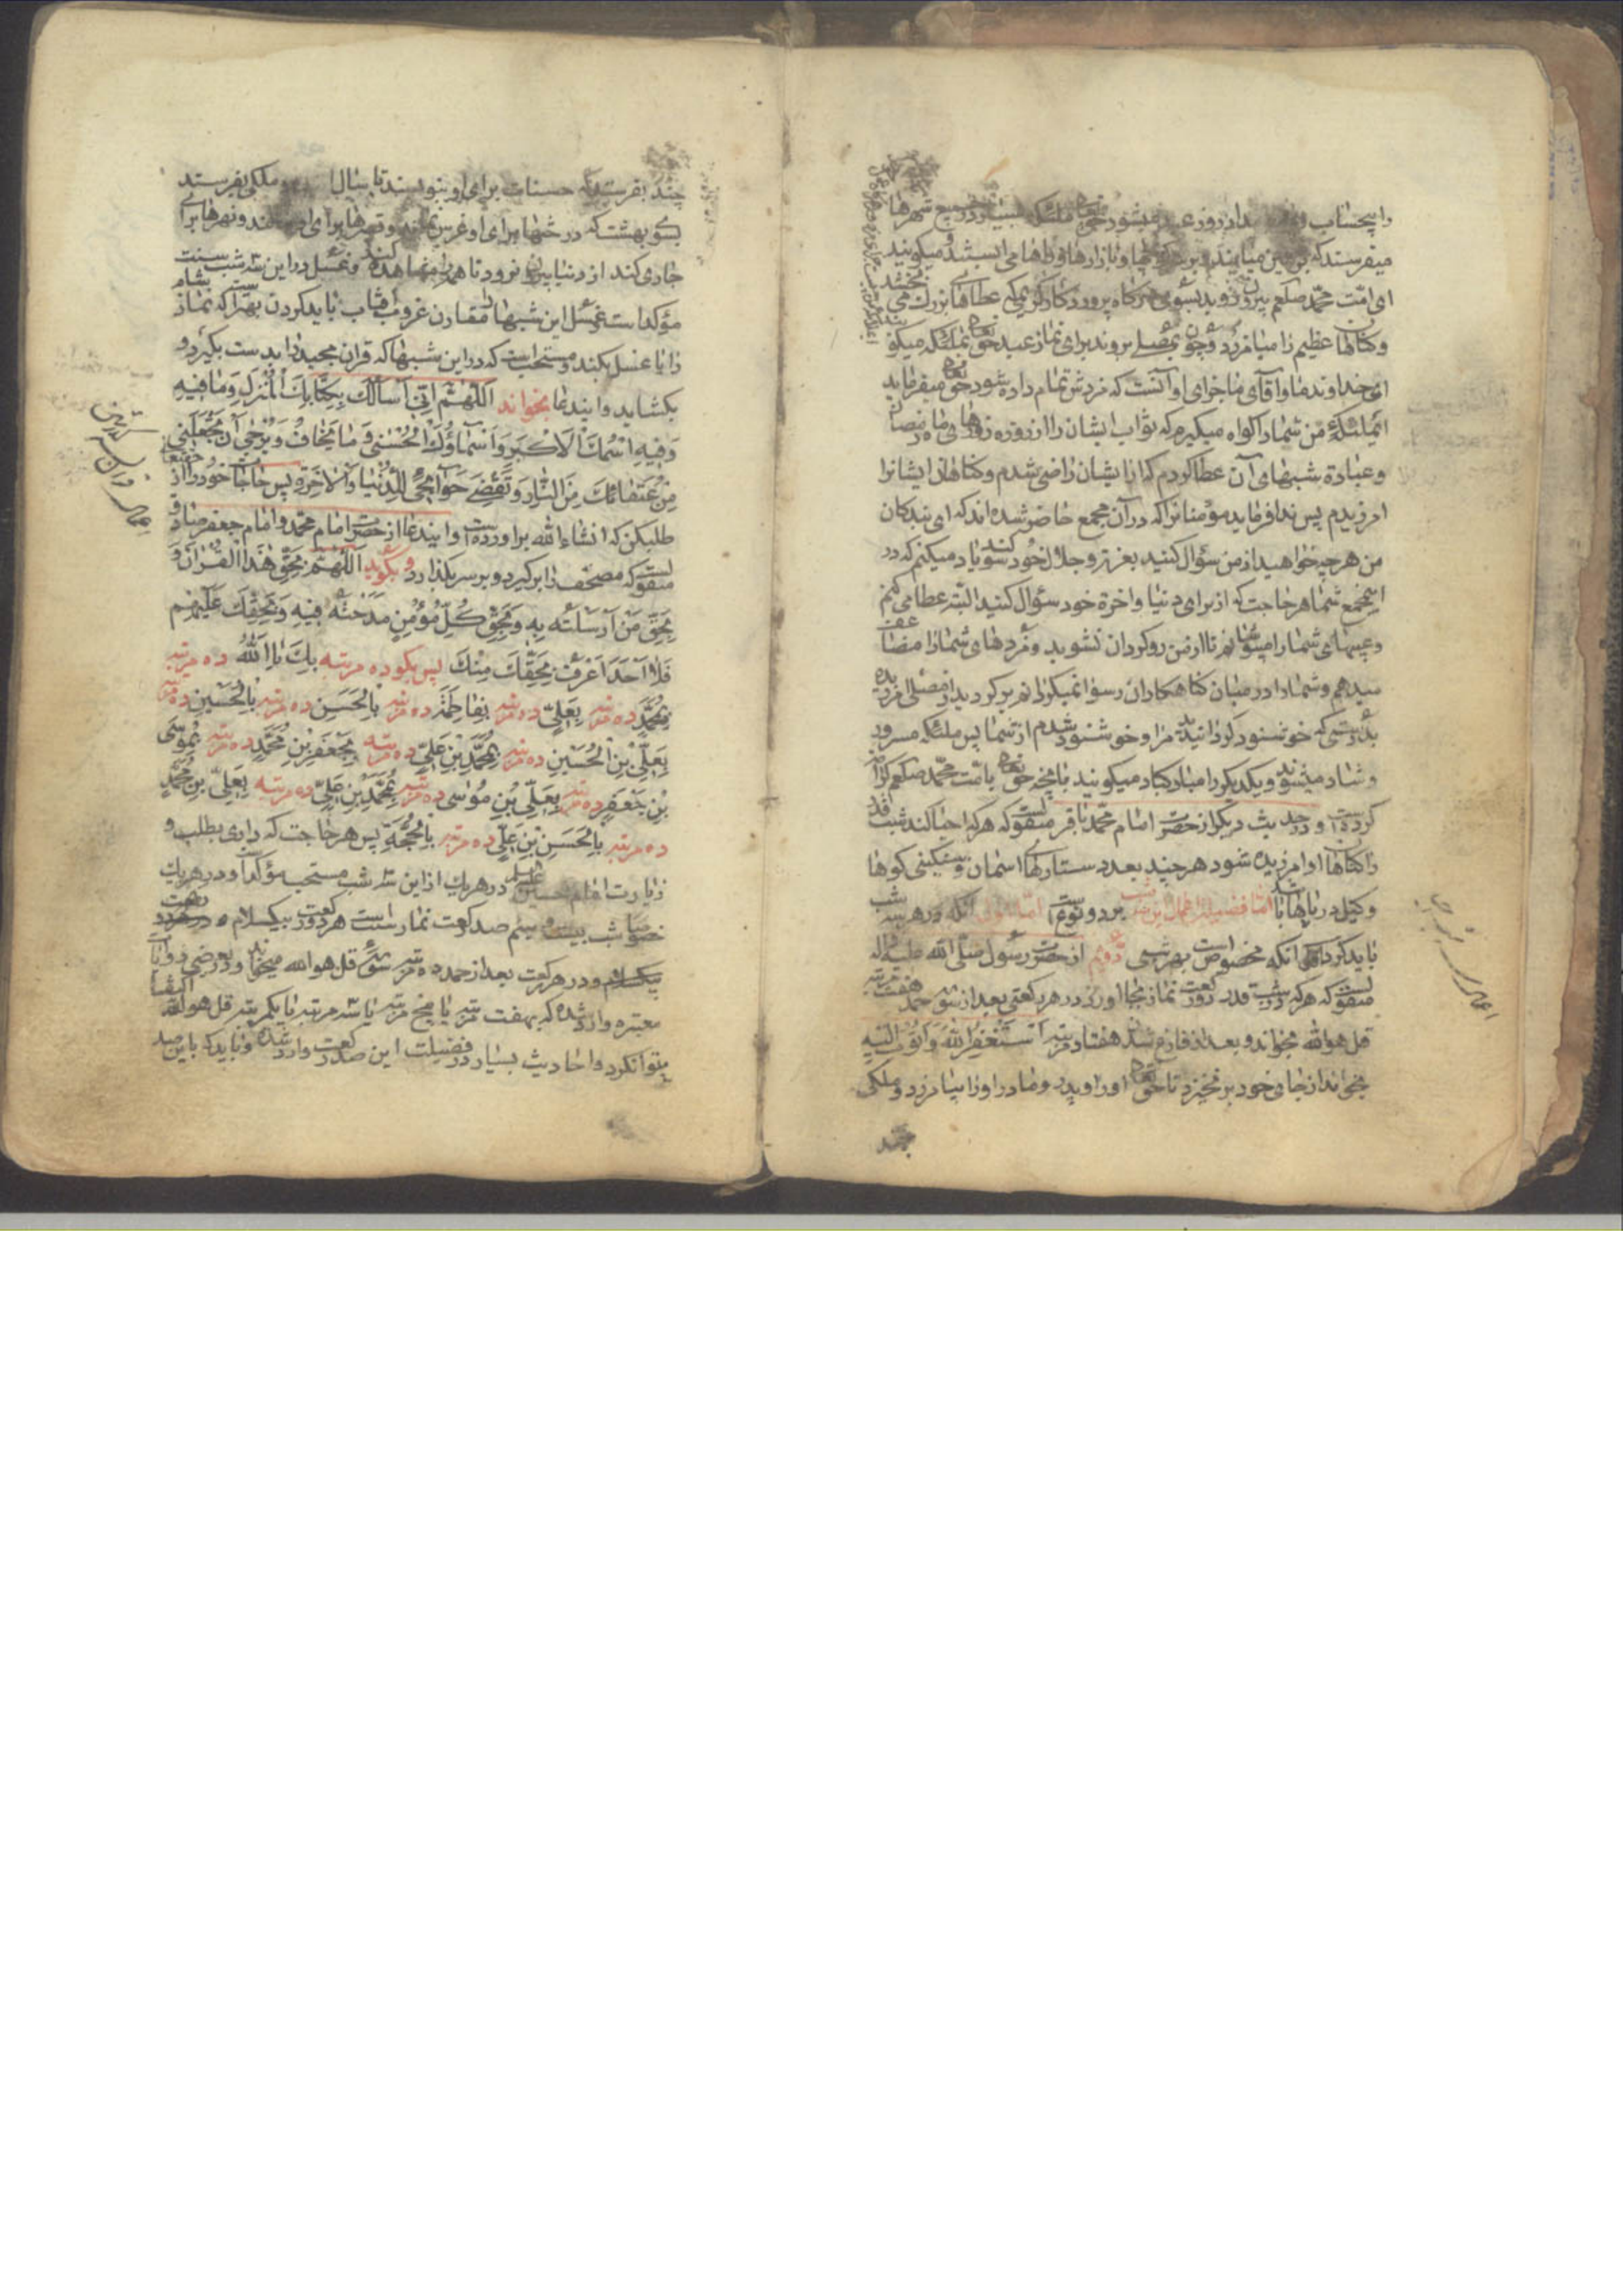 میشود حق تعالی ملئکه بسیار در جمیع شهرها
میفرستد که بر زمین میآیند و بر سر کوچها و بازارها و راهها می ایستند و میگویند
ای امت محمد صلعم بیرون روید بسوی درکاه پروردکار کریمی که عطاهای بزرک می بخشد
و کناهان عظیم را میامرزد و چون بمصلی بروند برای نماز عید حق تعالی بملئکه میکوید
ای خداوند ما و آقای ما جزای او آنست که مزدش تمام داده شود حق تعالی میفرماید
ایملئکه من شما را کواه میکیرم که ثواب ایشان را از روزه روزهای ماه رمضان
و عبادة شبهای آن عطا کردم که از ایشان راضی شدم و کناهان ایشانرا
امرزیدم پس ندا فرماید مؤمنانرا که در آن مجمع حاضر شده اند که ای بندکان
من هر چه خواهید از من سؤال کنید بعزت و جلال خود سوکند یاد میکنم که در
اینجمع شما هر حاجت که از برای دنیا و اخرة خود سؤال کنید البته عطا می کنم
و عیبهای شما را میپوشانم تا از من روکردان نشوید و مزدهای شما را مضاعف
میدهم و شما را در میان کناهکاران رسوا نمیکردانم برکردید از مصلی امرزیده
بدرستی که خوشنود کردانیدید مرا و خوشنود شدم از شما پس ملئکه مسرور
و شاد میشوند و یکدیکر را مبارکباد میکویند بآنچه حق تعالی بامت محمد صلعم کرامت
کرده است و در حدیث دیکر از حضرت امام محمد باقر منقولست که هر که احیا کند شب قدر
را کناهان او امرزیده شود هر چند بعدد ستارهای اسمان و سنکینی کوهها
و کیل دریاها باشد اما فضیلت اعمال این شب بر دو نوع است اما اولی انکه در هر سه شب
باید کرد و انکه مخصوص بهر شبی دویم از حضرت رسول صلی الله علیه و اله
منقولست که هر که در شب قدر دو رکعت نماز بجا اورد و در هر رکعتی بعد از سوره حمد هفت مرتبه
قل هو الله بخواند و بعد از فارغ شدن هفتاد مرتبه اَسْتَغْفِرُ اللهَ وَ اَتُوبُ اِلَیْهِ
بخواند از جای خود برنخیزد تا حق تعالی او را و پدر و مادر او را بیامرزد و ملکی
چند
چند بفرستد که حسنات برای او بنویسند تا بسال و ملکی بفرستد
بسوی بهشت که درختها برای او غرس نمایند و قصرها برای او و نهرها برای
جاری کند از دنیا بیرون نرود تا همه را مشاهده کند و غسل در این سه شب سنت
مؤکد است و غسل این شبها را مقارن غروب افتاب باید کردن بهتر است که نماز شام
را با غسل بکند و مستحب است که در این شبها که قران مجید را بدست بکیرد و
بکشاید و ایندعا بخواند اَللّهُمَّ اِنّی اَسْاَلُکَ بِکِتابِکَ الْمُنْزَلِ وَ ما فیهِ
وَ فیهِ اسْمُکَ الْاَکْبَرُ وَ اَسْماؤُکَ الْحُسْنی وَ ما یُخافُ وَ یُرْجی اَنْ تَجْعَلَنی
مِنْ عُتَقائِکَ مِنَ النّارِ وَ تَقْضِیَ حَوآئِجی لِلدُّنْیا وَ الْاخِرَةِ پس حاجات خود را از حق تعالی
طلب کن که انشاء الله براورده است و ایندعا از حضرت امام محمد و امام جعفر صادق
منقولست که مصحف را برکیرد و بر سر بکذارد و بکوید اَللّهُمَّ بِحَقِّ هذَا الْقُرْانِ وَ
بِحَقِّ مَنْ اَرْسَلْتَهُ بِهِ وَ بِحَقِّ کُلِّ مُؤْمِنٍ مَدَحْتَهُ فیهِ وَ بِحَقِّکَ عَلَیْهِمْ
فَلا اَحَدَ اَعْرَفُ بِحَقِّکَ مِنْکَ پس بکو ده مرتبه بِکَ یا اَللهُ ده مرتبه
بِمُحَمَّدٍ ده مرتبه بِعَلِیٍّ ده مرتبه بِفاطِمَةَ ده مرتبه بِالْحَسَنِ ده مرتبه بِالْحُسَیْنِ ده مرتبه
بِعَلِیِّ بْنِ الْحُسَیْنِ ده مرتبه بِمُحَمَّدِ بْنِ عَلِیٍّ ده مرتبه بِجَعْفَرِ بْنِ مُحَمَّدٍ ده مرتبه بِمُوسَی
بْنِ جَعْفَرٍ ده مرتبه بِعَلِیِّ بْنِ مُوسی ده مرتبه بِمُحَمَّدِ بْنِ عَلِیٍّ ده مرتبه بِعَلِیِّ بْنِ مُحَمَّدٍ
ده مرتبه بِالْحَسَنِ بْنِ عَلِیٍّ ده مرتبه بِالْحُجَّةِ پس هر حاجت که داری بطلب و
زیارت امام حسین در هر یک از این سه شب مستحب مؤکد است و در هر یک
خصوصا شب بیست و سیم صد رکعت نماز سنت است هر دو رکعت بیکسلام
و در هر رکعت بعد از حمد ده مرتبه سوره قل هو الله میخوانند و در بعضی روایات
معتبره وارد شده که هفت مرتبه یا پنج مرتبه یا سه مرتبه یا یکمرتبه قل هو الله اکتفا
میتوانکرد و احادیث بسیار در فضیلت این صد رکعت وارد شده و باید که باین صد